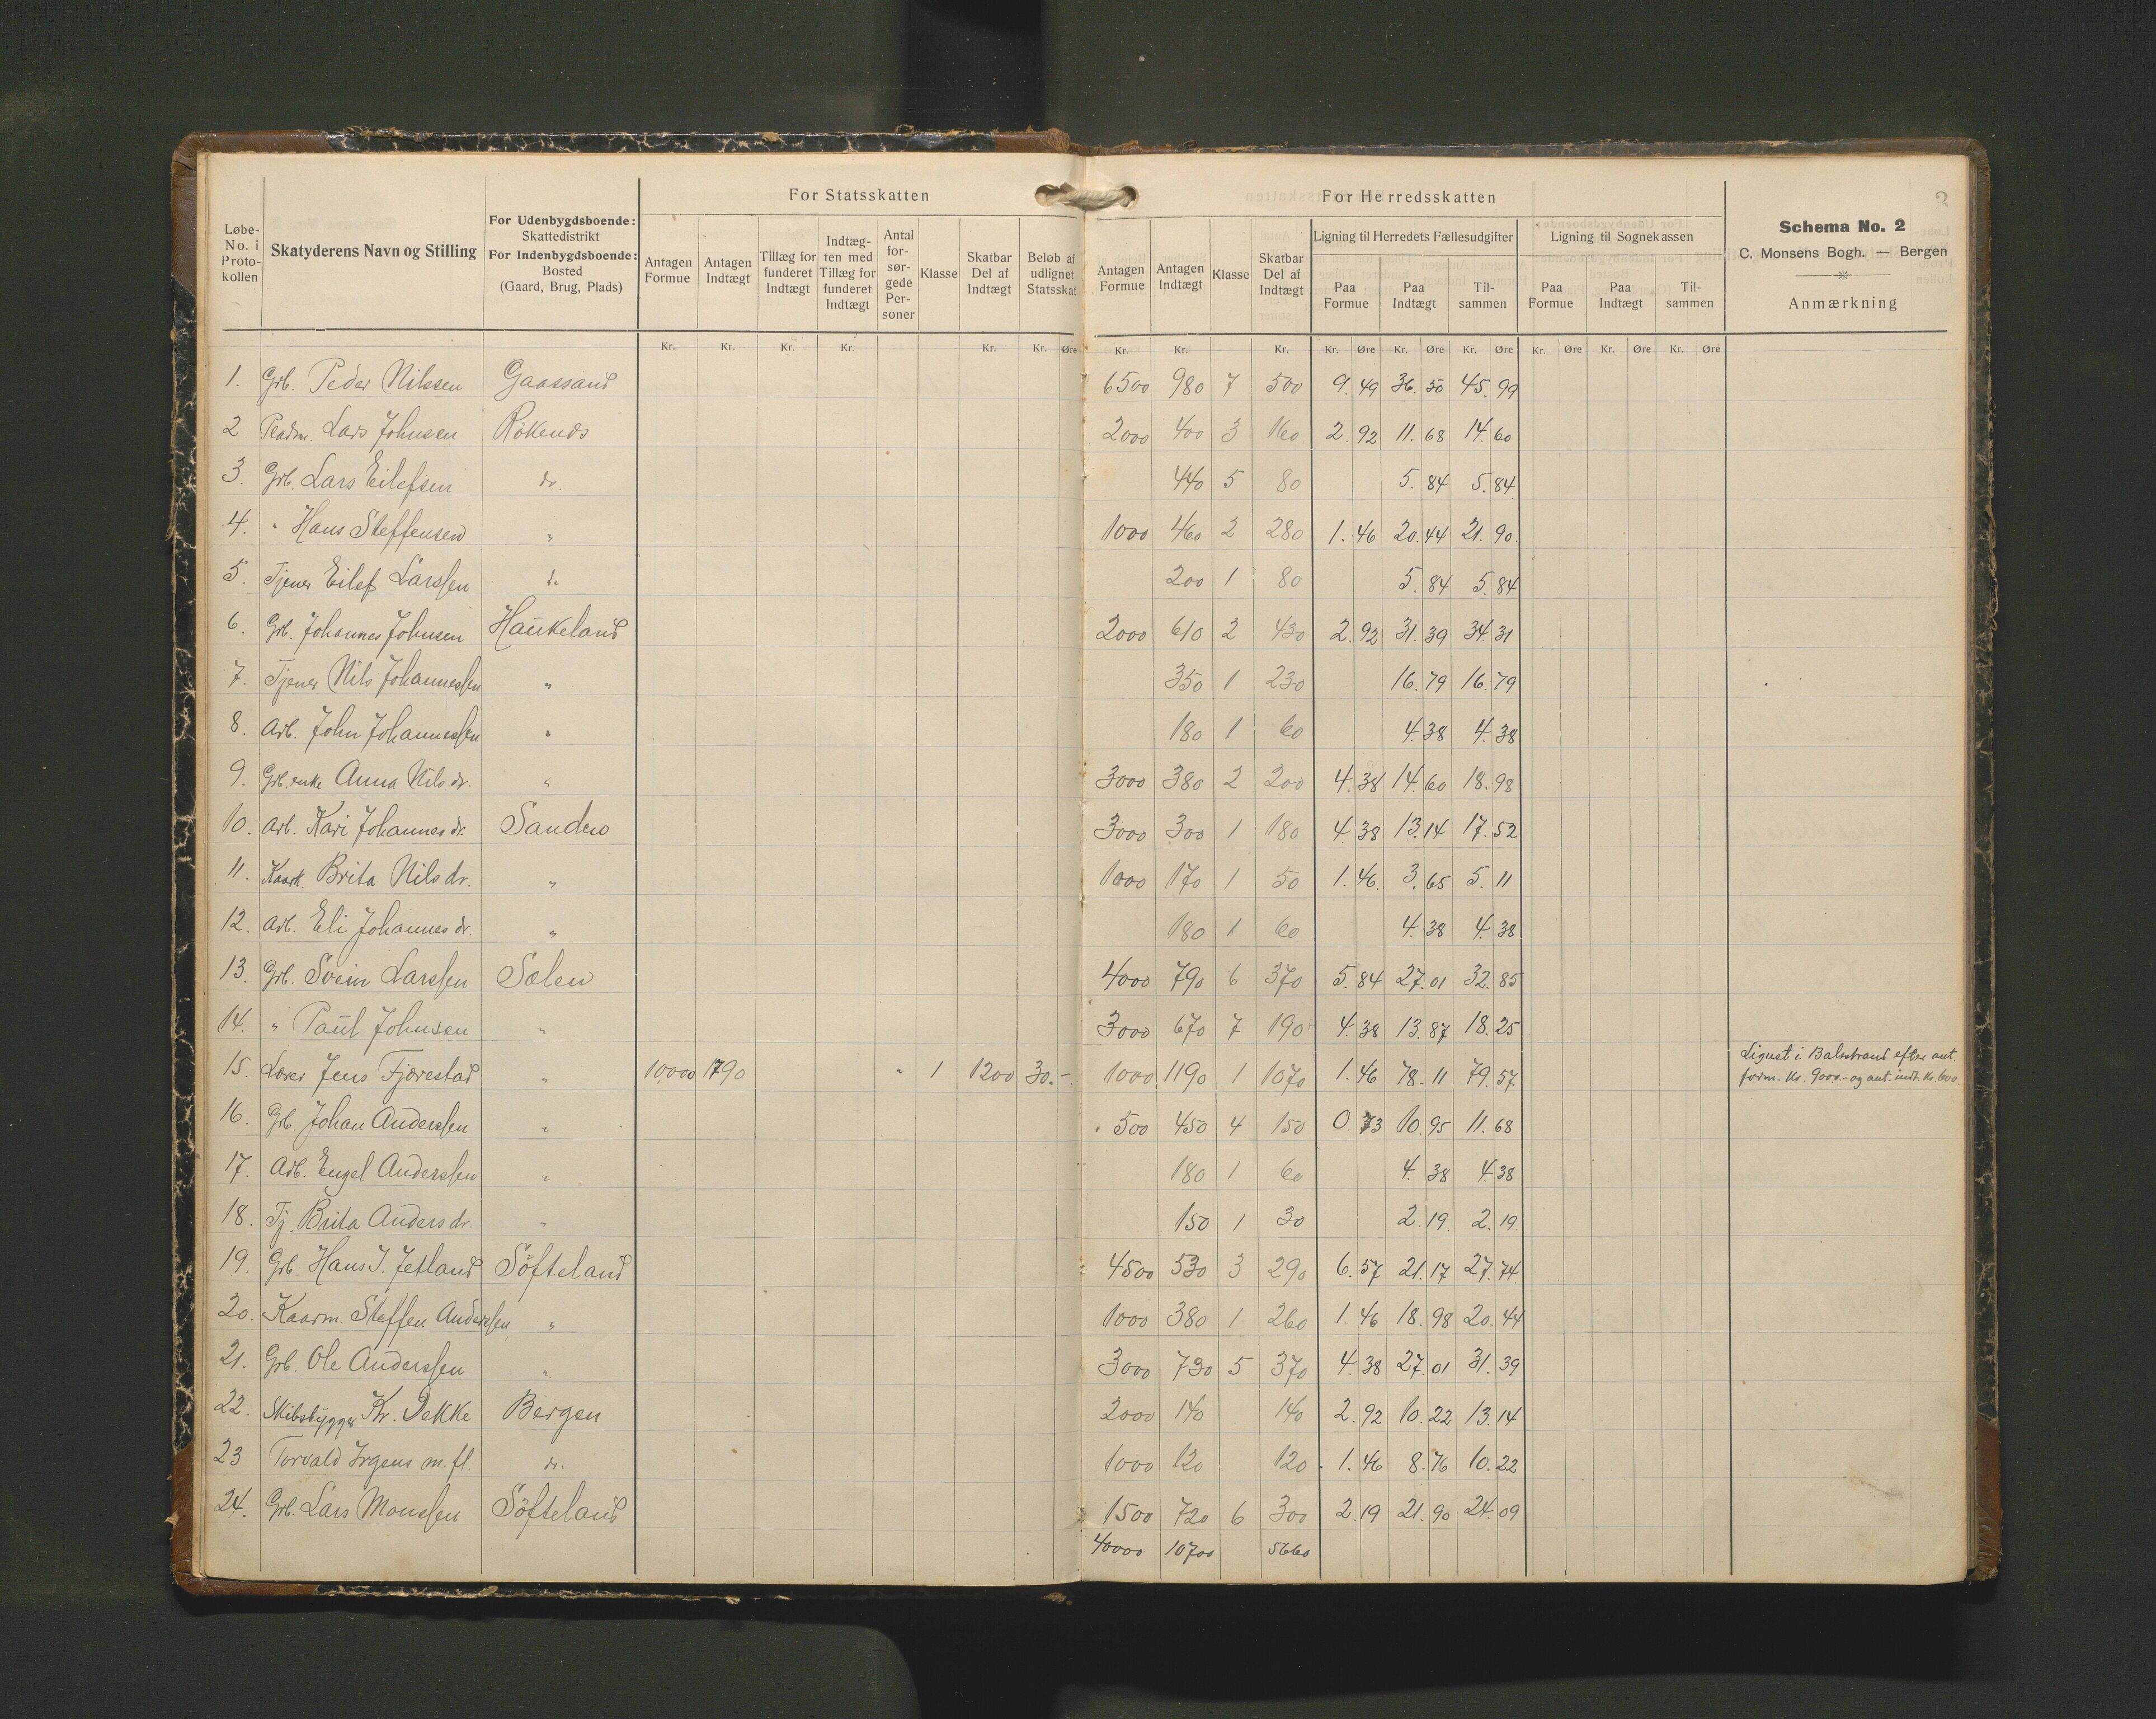 For Statsskatten
For Herredsskatten
2
Løbe-No. i Proto-kollen
Skatyderens Navn og Stilling
For Udenbygdsboende: Skattedistrikt
For Indenbygdsboende: Bosted (Gaard, Brug, Plads)
Antagen Formue
Antagen Indtægt
Tillæg for funderet Indtægt
Indtæg-ten med Tillæg for funderet Indtægt
Antal for-sør-gede Per-soner
Klasse
Skatbar Del af Indtægt
Beløb af udlignet Statsskat
Antagen Formue
Antagen Indtægt
Klasse
Skatbar Del af Indtægt
Ligning til Herredets Fællesudgifter
Paa Formue
Paa Indtægt
Til-sammen
Ligning til Sognekassen
Paa Formue
Paa Indtægt
Til-sammen
Schema No. 2
C. Monsens Bogh. — Bergen
Anmærkning
Kr. Kr. Kr. Kr. Kr. Kr. Øre Kr. Kr. Kr. Kr. Øre Kr. Øre Kr. Øre Kr. Øre Kr. Øre Kr. Øre
1. Grb. Peder Nilssen Gaassand 6500 980 7 500 9.49 36.50 45.99
2 Pladsm. Lars Johnsen Rökends 2000 400 3 160 2.92 11.68 14.60
3. Grb. Lars Eilefsen do. 440 5 80 5.84 5.84
4. " Hans Steffensen " 1000 460 2 280 1.46 20.44 21.90
5. Tjener Eilef Larssen do 200 1 80 5.84 5.84
6. Grb. Johannes Johnsen Haukeland 2000 610 2 430 2.92 31.39 34.31
7. Tjener Nils Johannessen " 350 1 230 16.79 16.79
8. Arb. John Johannessen " 180 1 60 4.38 4.38
9. Grb. enke Anna Nilsdr. " 3000 380 2 200 4.38 14.60 18.98
10. Arb. Kari Johannesdr. Sanden 3000 300 1 180 4.38 13.14 17.52
11. Kaark. Brita Nilsdr. " 1000 170 1 50 1.46. 3.65 5.11
12. Arb. Eli Johannesdr. " 180 1 60 4.38 4.38
13. Grb. Svein Larssen Sælen 4000 790 6 370 5.84 27.01 32.85
14. " Paul Johnsen " 3000 670 7 190 4.38 13.87 18.25
15. Lærer Jens Fjørestad " 10,000 1790 " 1 1200 30.-. 1000 1190 1 1070 1.46 78.11 79.57 Lignet i Balestrand efter ant.
form. kr. 9000.- og ant. indt. kr. 600.
16. Grb. Johan Anderssen " 500 450 4 150 0.73 10.95 11.68
17. Arb. Engel Anderssen " 180 1 60 4.38 4.38
18. Tj. Brita Andersdr. " 150 1 30 2.19. 2.19
19. Grb. Hans J. Jetland Söfteland 4500 530 3 290 6.57 21.17 27.74
20. Kaarm. Steffen Anderssen " 1000 380 1 260 1.46 18.98 20.44
21. Grb. Ole Anderssen " 3000 730 5 370 4.38 27.01 31.39
22. Skibsbygger Kr. Dekke Bergen 2000 140 140 2.92 10.22 13.14
23 Torvald Irgens m. fl. do. 1000 120 120 1.46 8.76 10.22
24. Grb. Lars Monssen Söfteland 1500 720 6 300 2.19 21.90 24.09
40000 10700 5660